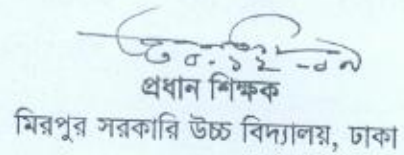 প্রধান শিক্ষক
মিরপুর সরকারি উচ্চ বিদ্যালয়, ঢাকা